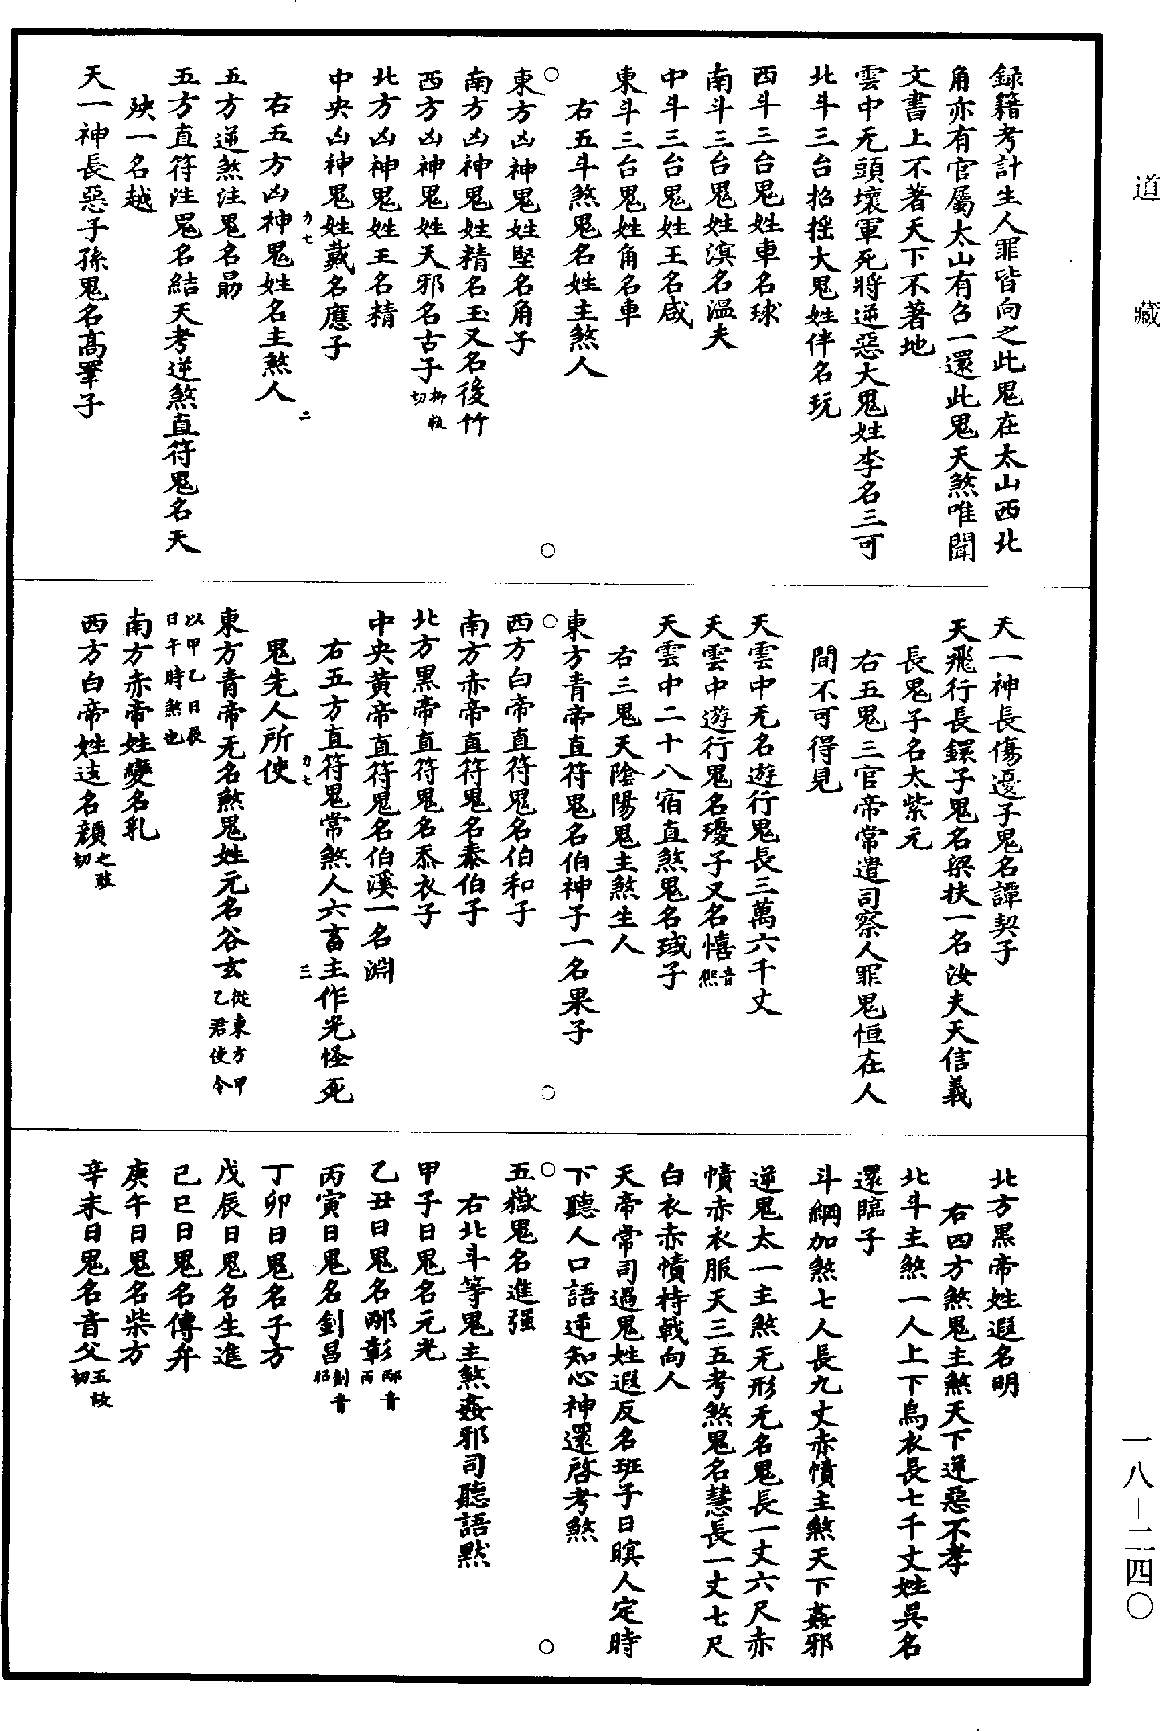 道藏
錄籍考計生人罪皆向之此鬼在太山西北
角亦有官屬太山有名一還此鬼天煞唯聞
文書上不著天下不著地
雲中无頭壞軍死將逆惡大鬼姓李名三可
北斗三台招搖大鬼姓伴名玩
西斗三台鬼姓車名球
南斗三台鬼姓溟名溫夫
中斗三台鬼姓王名咸
東斗三台鬼姓角名車
右五斗煞鬼名姓主煞人
東方凶神鬼姓堅名角子
南方凶神鬼姓精名玉又名後竹
西方凶神鬼姓天邪名古子
北方凶神鬼姓王名精
中央凶神鬼姓戴名應子
右五方凶神鬼姓名主煞人
力七 二
五方逆煞注鬼名勗
五方直符注鬼名結天考逆煞直符鬼名天
殃一名越
天一神長惡子孫鬼名高睪子
天一神長傷憂子鬼名譚契子
天飛行長鏍子鬼名梁扶一名汝夫天信義
長鬼子名太紫元
右五鬼三官帝常遣司察人罪鬼恒在人
間不可得見
天雲中无名遊行鬼長三萬六千丈
天雲中遊行鬼名瓇子又名憘音熙
天雲中二十八宿直煞鬼名琙子
右三鬼天陰陽鬼主煞生人
東方青帝直符鬼名伯神子一名果子
西方白帝直符鬼名伯和子
南方赤帝直符鬼名泰伯子
北方黑帝直符鬼名忝衣子
中央黃帝直符鬼名伯溪一名淵
右五方直符鬼常煞人六畜主作光怪死
力七 三
鬼先人所使
東方青帝无名煞鬼姓元名谷玄從東方甲乙君使令
以甲乙日辰日午時煞也
南方赤帝姓變名乳
西方白帝姓迲名顏
北方黑帝姓遐名明
右四方煞鬼主煞天下逆惡不孝
北斗主煞一人上下烏衣長七千丈姓吳名
還臨子
斗綱加煞七人長九丈赤幘主煞天下姦邪
逆鬼太一主煞无形无名鬼長一丈六尺赤
幘赤衣服天三五考煞鬼名慧長一丈七尺
白衣赤幘持戟向人
天帝常司過鬼姓遐反名班子日暝人定時
下聽人口語逆知心神還啓考煞
五嶽鬼名進強
右北斗等鬼主煞姦邪司聽語默
甲子日鬼名元光
乙丑日鬼名郉彰郉音丙
丙寅日鬼名釗昌釗音招
丁卯日鬼名子方
戊辰日鬼名生進
己巳日鬼名傳弁
庚午日鬼名柴方
辛未日鬼名音父五故切
一八—二四〇